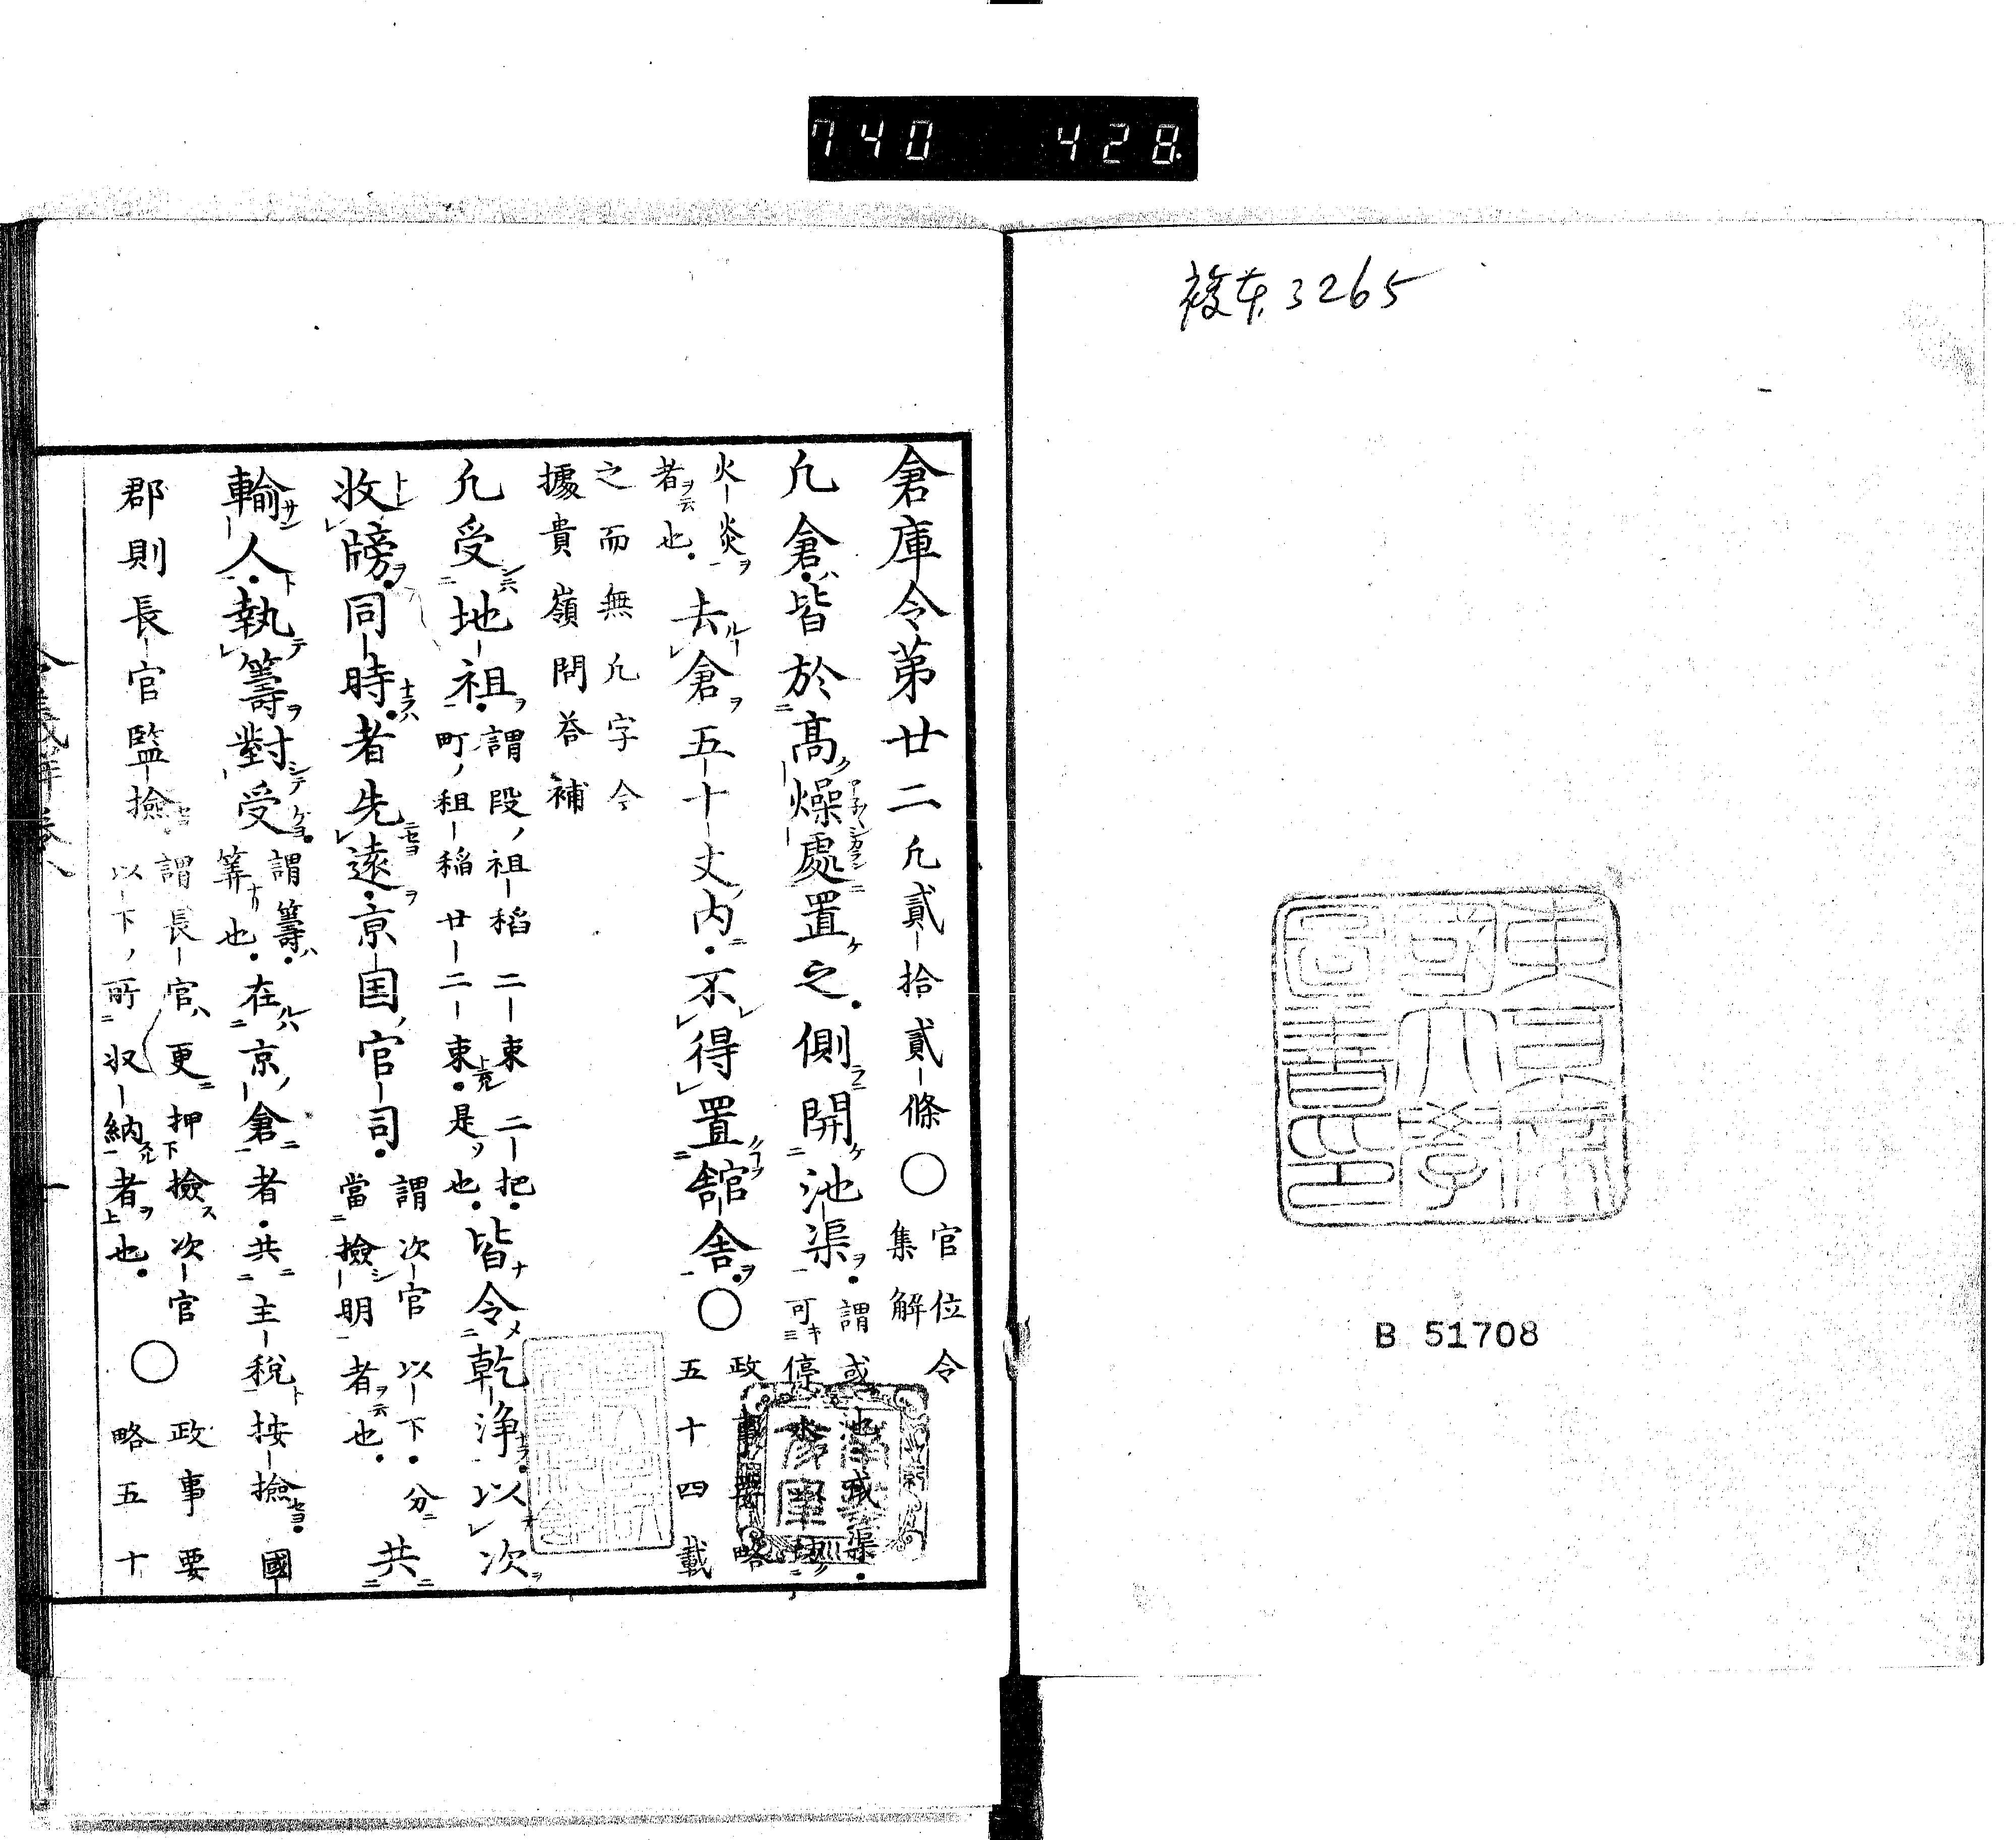 740 428
複本3265
東京帝
國大學
圖書印
B 51708
倉庫令第廿二凡貳拾貳條〇官位令
集解
凡倉皆於高燥處置之側開池渠謂或池或渠
可停水
火炎
者也去倉五十丈内不得置舘舎〇政事要略
五十四載
之而無凡字今
據貴嶺問荅補
凡受地祖謂段祖稻二束二把
町租稲廿二束是也皆令乾浄以次
收牓同時者先遠京国官司謂次官以下分
當撿明者也共
輸人執籌對受謂籌
筭也在京倉者共主税按撿國
郡則長官監撿謂長官更押撿次官
以下所収納者也〇政事要
略五十